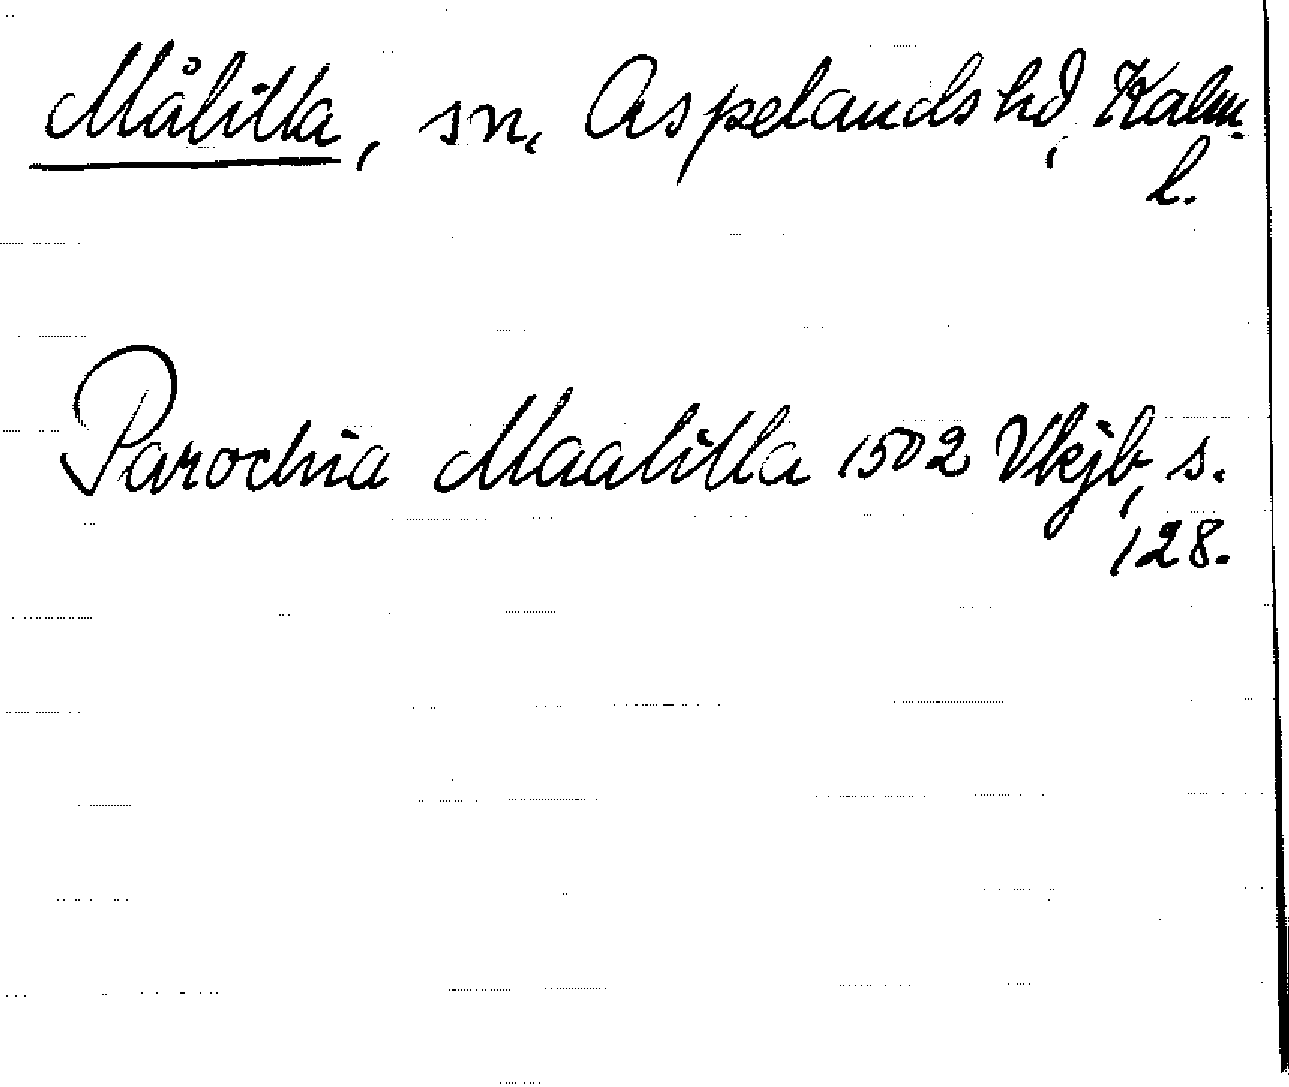 Målilla, sn, Aspelands hd, Kalm.
l.
Parochia Maalilla 1502 Vkjb, s.
128.